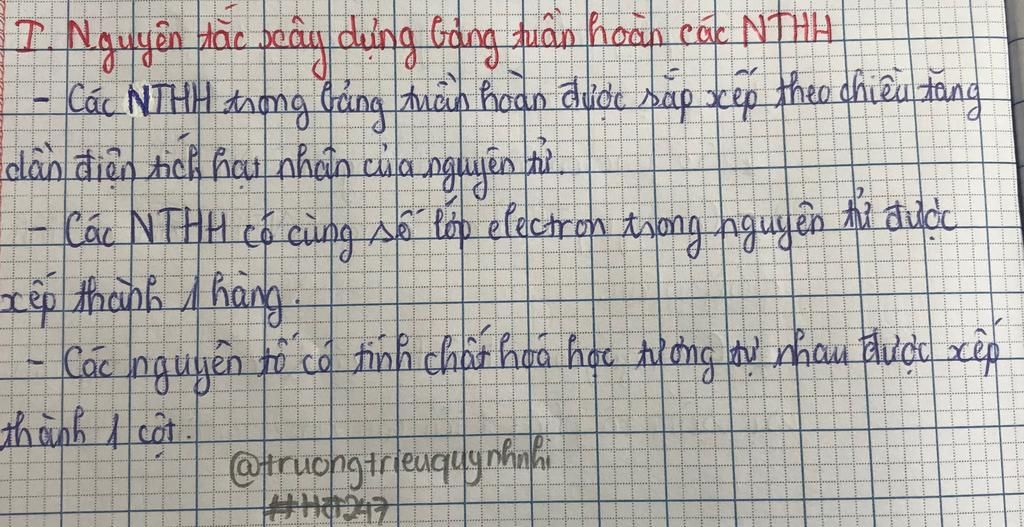 I. Nguyên tắc xây dựng bảng tuần hoàn các NTHH
- Các NTHH trong bảng tuần hoàn được sắp xếp theo chiều tăng
dần điện tích hạt nhân của nguyên tử.
- Các NTHH có cùng số lớp electron trong nguyên tử được
xếp thành 1 hàng.
- Các nguyên tố có tính chất hoá học tương tự nhau được xếp
thành 1 cột.
@truongtrieuquynhnhi